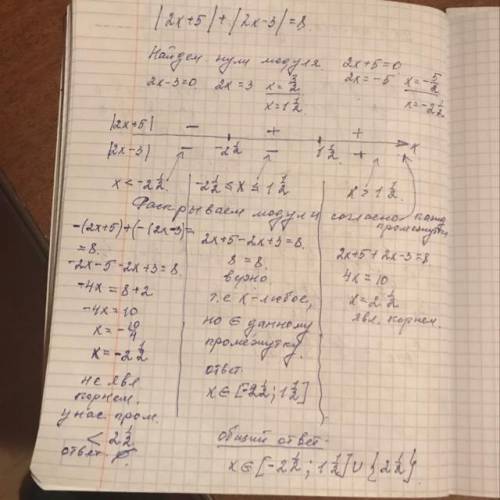 |2x+5|+|2x-3|=8
Найдем нули модуля
2x+5=0
2x-3=0 2x=3 x=3/2 2x=-5 x=-5/2
x=1 1/2 x=-2 1/2
|2x+5| - + +
-2 1/2 1 1/2 x
|2x-3| - - +
x<-2 1/2 -2 1/2 ≤ x ≤ 1 1/2 x>1 1/2
Раскрываем модули согласно
промежутку
-(2x+5)+(-(2x-3)=
=8.
-2x-5-2x+3=8
-4x=8+2
-4x=10
x=-10/4
x=-2 1/2
не явл
корнем.
у нас пром.
<2 1/2
ответ ∅.
2x+5-2x+3=8.
8=8.
т.е x-любое,
но ∈ данному
промежутку.
ответ
x∈[-2 1/2; 1 1/2]
2x+5+2x-3=8
4x=10
x=2 1/2
явл. корнем.
Общий ответ.
x∈[-2 1/2; 1 1/2]∪{2 1/2}